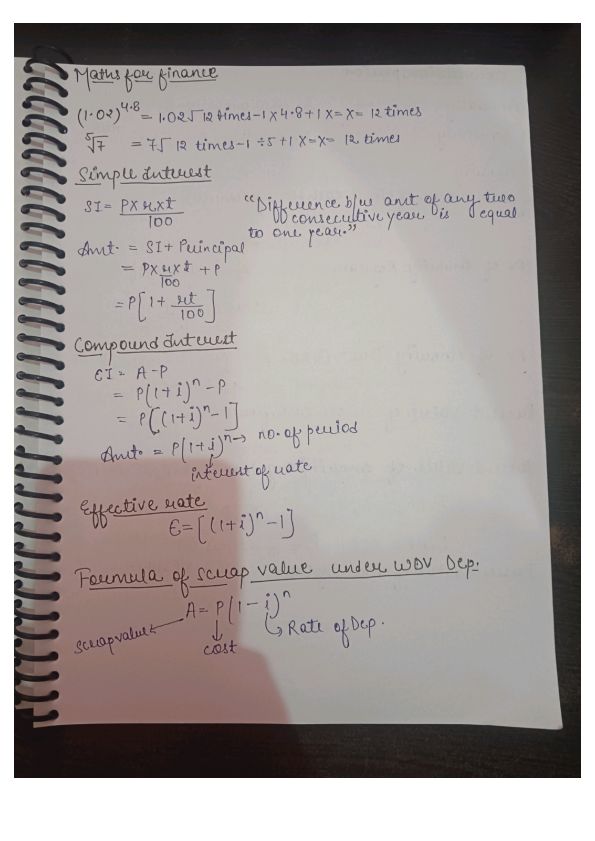 Maths for finance
(1.02)^4.8 = 1.02√ 12 times -1 x 4.8 + 1 x = x = 12 times
⁵√7 = 7√ 12 times -1 ÷5 +1 x = x = 12 times
Simple Interest
SI = Pxrxt/100
"Difference b/w amt of any two
consecutive year is equal
to one year."
Amt. = SI + Principal
= Pxrxt/100 + P
= P[1 + rt/100]
Compound Interest
CI = A - P
= P(1+i)^n - P
= P[(1+i)^n - 1]
Amt. = P(1+i)^n → no. of period
interest of rate
Effective rate
E = [(1+i)^n - 1]
Formula of scrap value under WDV Dep.
A = P(1-i)^n
scrap value
cost
Rate of Dep.